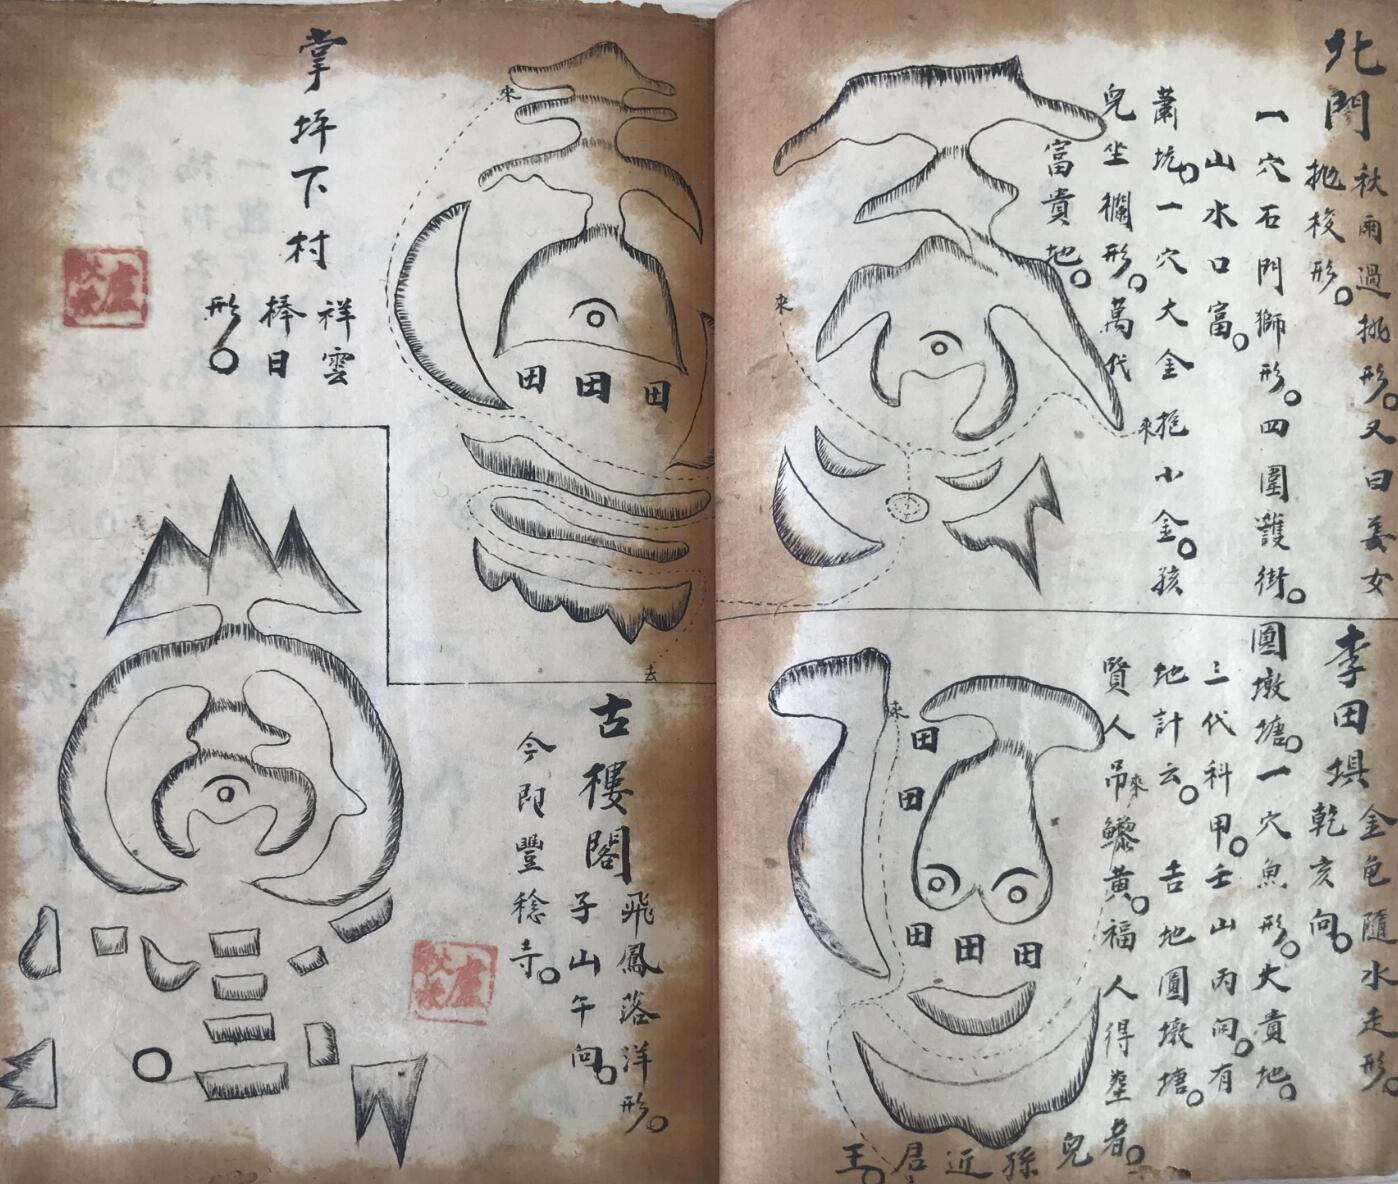 北門
秋雨過挑形。又曰姜女
拋梭形。
一穴石門獅形。四圍護衛。
山水口富。
蕭坑。一穴大金抱小金。孩
兒坐欄形。萬代
富貴地。
來
來
李田垻
金包隨水走形。
乾亥向。
圓墩塘。一穴魚形。大貴地。
三代科甲。壬山丙向。有
地計云。吉地圓墩塘。
賢人吊黃。福人得塟者。
兒孫近君王。
來
來
田
田
田
田
田
掌坪下村
祥雲
棒日
形。
來
田田田
去
古樓閣
飛鳳落洋形。
子山午向。
今即豐稔寺。